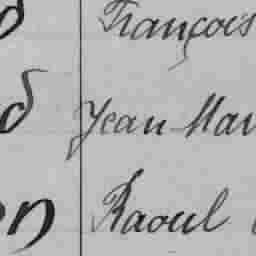 d François
d Jean Mar
on Raoul